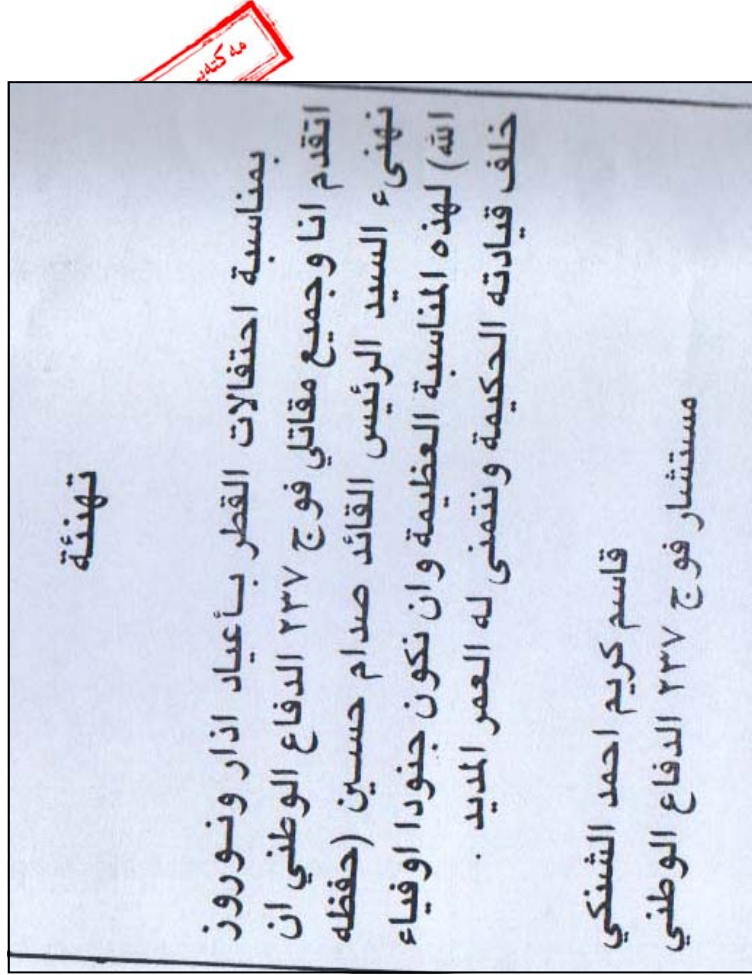 مه كتەبـ
تهنئة
بمناسبة احتفالات القطر بأعياد اذار ونوروز
اتقدم انا وجميع مقاتلي فوج ٢٣٧ الدفاع الوطني ان
نهنىء السيد الرئيس القائد صدام حسين (حفظه
الله) لهذه المناسبة العظيمة وان نكون جنودا اوفياء
خلف قيادته الحكيمة ونتمنى له العمر المديد .
قاسم كريم احمد الشنكي
مستشار فوج ٢٣٧ الدفاع الوطني